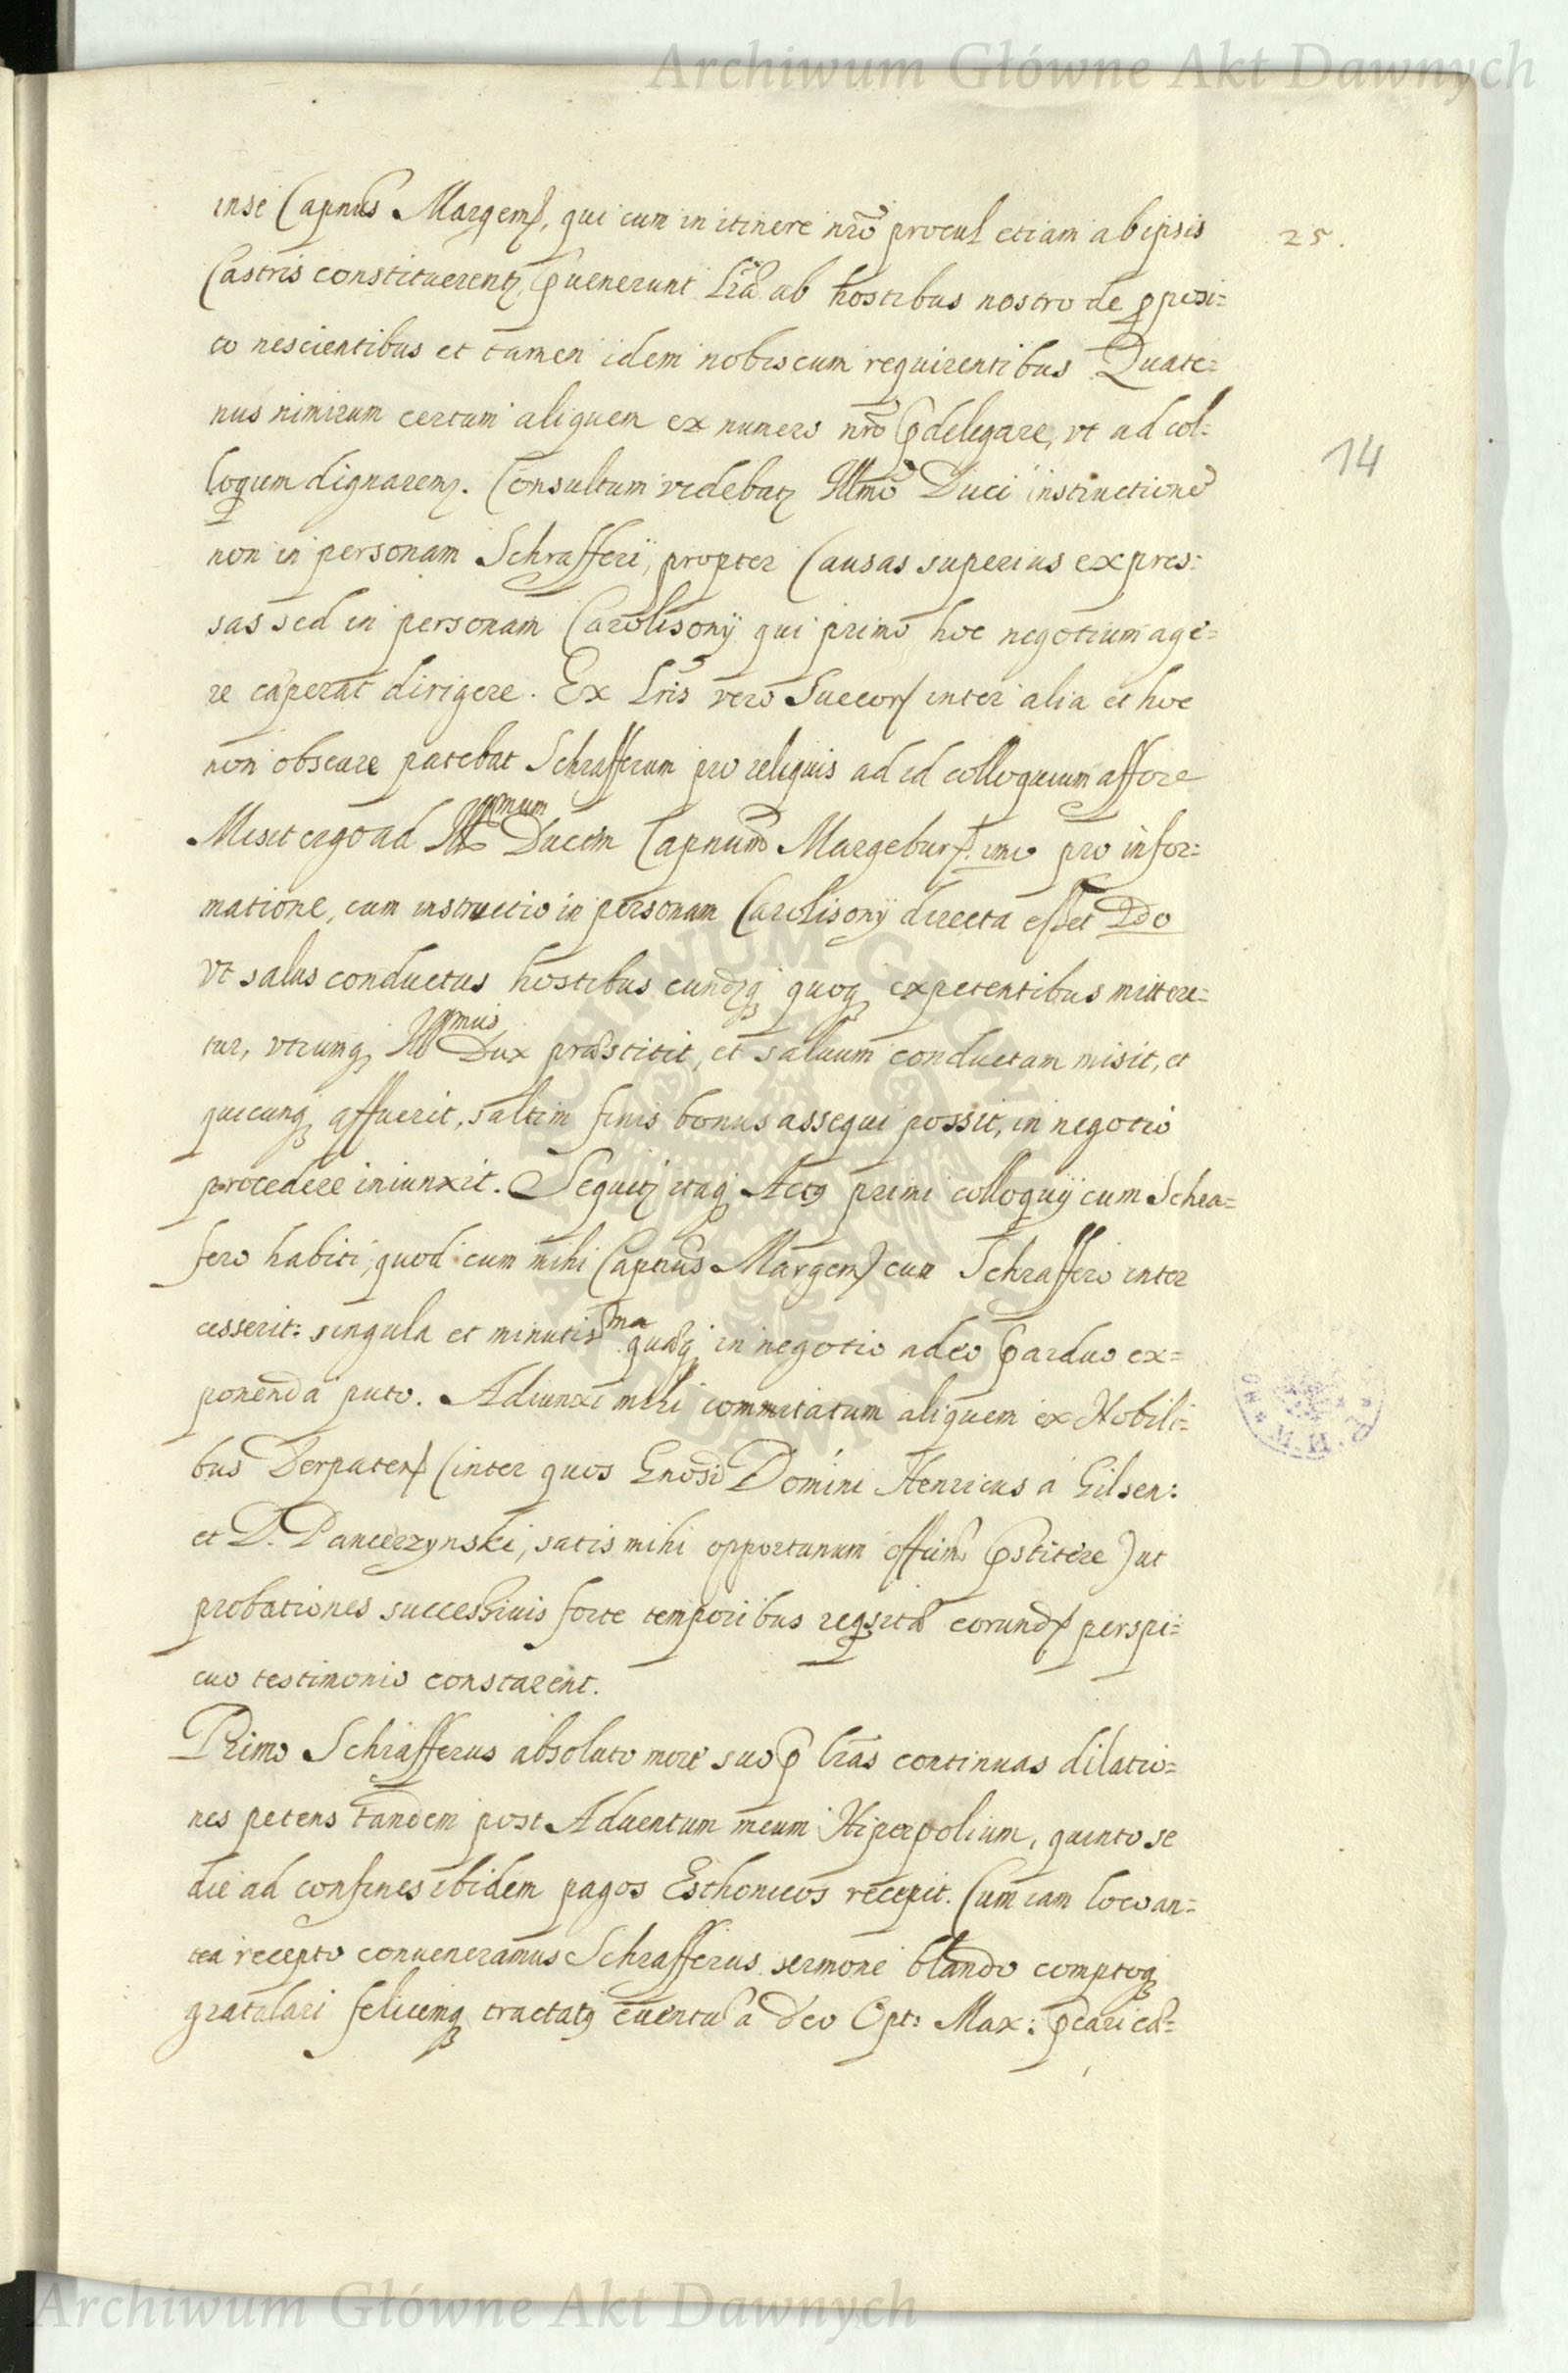 Archiwum Główne Akt Dawnych
inse Capnus Margem, qui cum in itinere nro procul etiam ab ipsis
25.
Castris constituerent, puenerunt Lrae ab hostibus nostro de pposi=
to nescientibus et tamen idem nobiscum requirentibus Quate=
nus nimirum certum aliquem ex numero nro pdelegare, vt ad col=
14
loqum dignarem. Consultum videbat Illmo Duci instructione
non in personam Schrafferi, propter Causas superius expres=
sas sed in personam Carolisonij qui primo hoc negotium age=
re caeperat dirigere. Ex Lris vero Suecor inter alia et hoc
non obscure patebat Schrafferum pro reliquis ad id colloquium affore
Misit ergo ad Illmum Ducem Capnum Margebur. imo pro infor=
matione, cum instructio in personam Carolisonij directa esset 2do
vt salus conductus hostibus eundq quoq expetentibus mittere=
tur, vtrumq Illmus Dux praestitit, et saluum conductam misit, et
quicunq affuerit, saltim finis bonus assequi possit, in negotio
procedere iniunxit. Sequit itaq Actus primi colloquij cum Schra=
fero habiti, quod cum mihi Capnus Margem cum Schraffero inter
cesserit: singula et minutissma quaeq in negotio adeo parduo ex=
ponenda puto. Adiunxi mihi commitatum aliquem ex Nobili=
bus Derpaten (inter quos Gnosi Domini Henricus a Gilsen:
et D. Pancerzynski, satis mihi opportunum offium pstitere) ut
probationes successiuis forte temporibus reqsitae eorund perspi=
cuo testimonio constarent.
Primo Schrafferus absoluto more suo p lras continuas dilatio=
nes petens tandem post Aduentum meum Hiperpolium, quinto se
die ad confines ibidem pagos Esthonicos recepit. Cum iam loco an=
tea recepto conueneramus Schrafferus sermone blando comptoq
gratulari felicemq tractatus euentu a deo Opt: Max: pcari cae=
Archiwum Główne Akt Dawnych